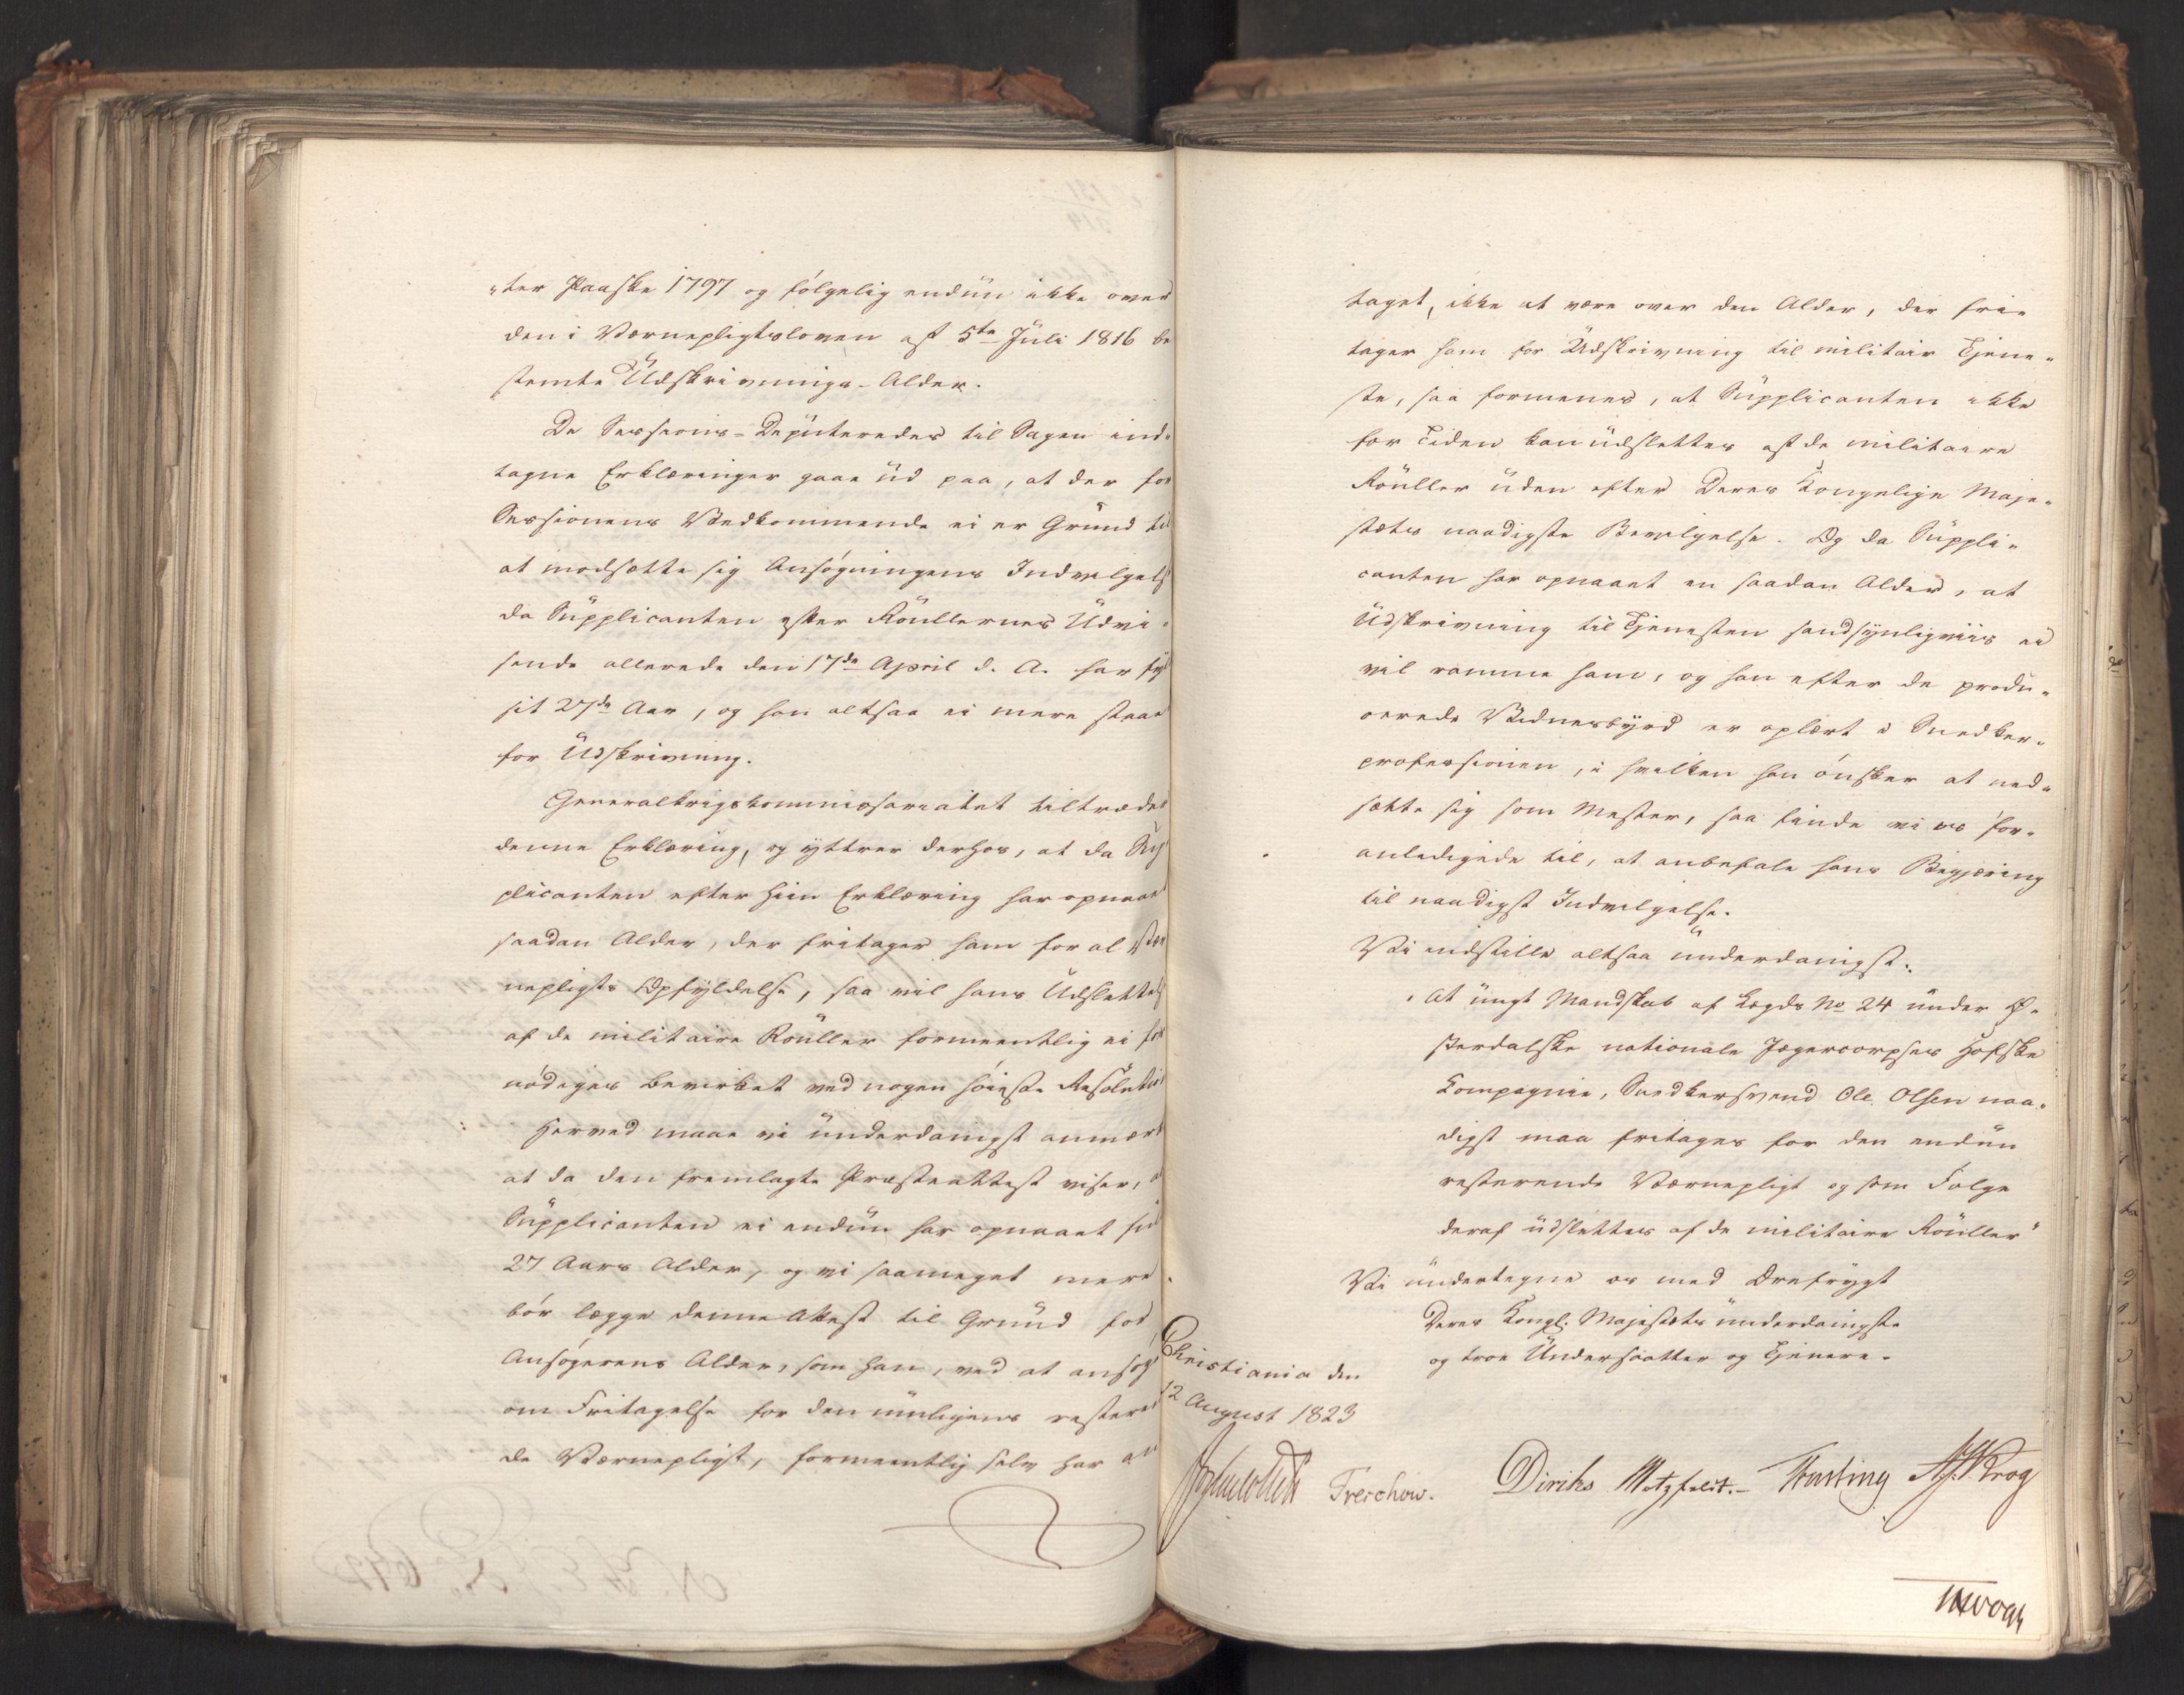 „ter Paaske 1797 og følgelig endnu ikke over
den i Værnepligtsloven af 5te Juli 1816 be
stemte Udskrivnings-Alder.
De Sessions-Deputeredes til Sagen ind-
tagne Erklæringer gaae ud paa, at der for
Sessionens Vedkommende ei er Grund til
at modsætte sig Ansøgningens Indvilgels
da Supplicanten efter Roullernes Udvi-
sende allerede den 17de April d. A. har fyl
sit 27de Aar, og han altsaa ei mere staae
for Udskrivning.
Generalkrigskommissariatet tiltræder
denne Erklæring, og yttrer derhos, at da Sup
plicanten efter hiin Erklæring har opnaaet
saadan Alder, der fritager ham for al Vær
nepligts Opfyldelse, saa vil hans Udslettels
af de militaire Rouller formeentlig ei for
nødiges bevirket ved nogen høieste Resolution
Herved maae vi underdanigst anmærk
at da den fremlagte Præsteattest viser, a
Supplicanten ei endnu har opnaaet sin
27 Aars Alder, og vi saameget mere
bør lægge denne Attest til Grund for
Ansøgerens Alder, som han, ved at ansøg
om Fritagelse for den muligens resteren
de Værnepligt, formeentlig selv har an
taget, ikke at være over den Alder, der fri-
tager ham for Udskrivning til militair Tjene-
ste, saa formenes, at Supplicanten ikke
for Tiden kan udslettes af de militaire
Rouller uden efter Deres Kongelige Maje-
stæts naadigste Bevilgelse. Og da Suppli-
canten har opnaaet en saadan Alder, at
Udskrivning til Tjenesten sandsynligviis ei
vil ramme ham, og han efter de produ-
cerede Vidnesbyrd er oplært i Snedker-
professionen, i hvilken han ønsker at ned-
sætte sig som Mester, saa finde vi os for-
anledigede til, at anbefale hans Begjæring
til naadigst Indvilgelse.
Vi indstille altsaa underdanigst:
„At ungt Mandskab af Lægds No 24 under Ø-
sterdalske nationale Jægercorpses Hofske
Kompagnie, Snedkersvend Ole Olsen naa-
digst maa fritages for den endnu
resterende Værnepligt og som Følge
deraf udslettes af de militaire Rouller"
Vi undertegne os med Ærefrygt
Deres Kongl. Majestæts underdanigste
og troe Undersaatter og Tjenere.
Christiania den
12 August 1823
Treschow. Diriks Motzfeldt. Fasting Krog